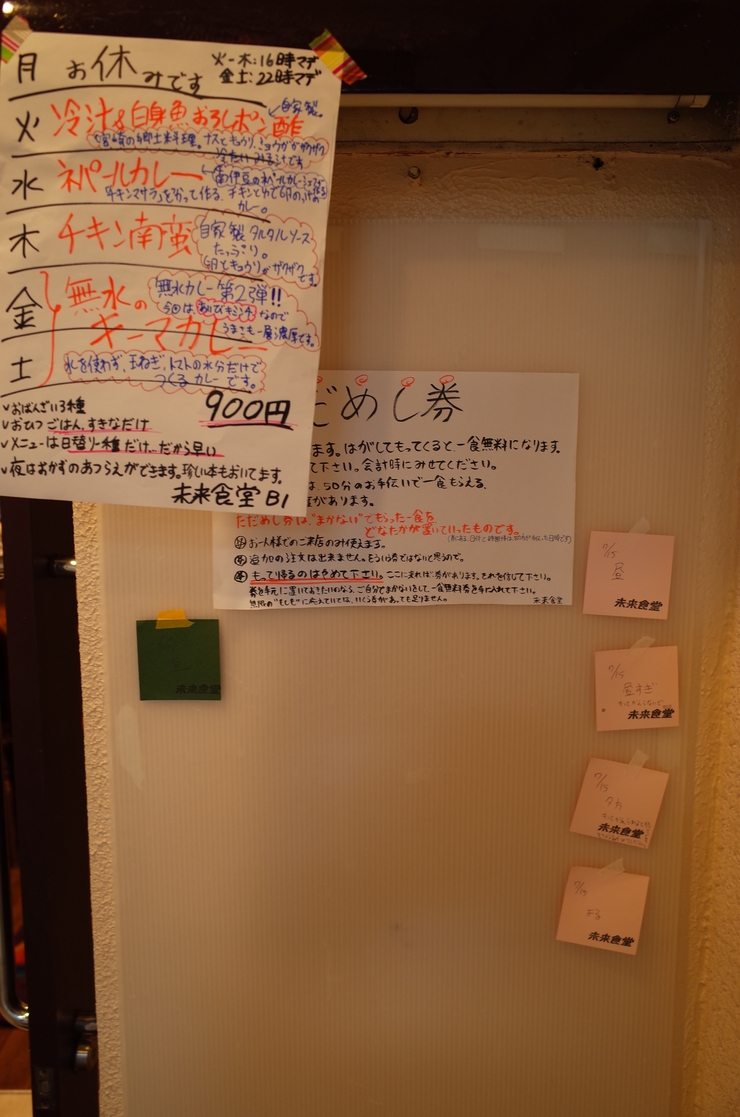 月 お休みです
火-木:16時マデ
金土:22時マデ
火 冷汁&白身魚おろしポン酢
自家製
宮崎の郷土料理。ナスとキュウリ、ミョウガがザクザク
冷たいみそ汁です
水 ネパールカレー
チキンマサラを
カレー。
木 チキン南蛮
自家製タルタルソース
たっぷり。
卵とキュウリがザクザクです。
金
土
無水の
キーマカレー
無水カレー第2弾!!
今回はあいびきミンチなので
うまさも一層濃厚です。
水を使わず、玉ねぎ、トマトの水分だけで
つくるカレーです。
900円
✓おばんざい3種
✓おひつごはん、すきなだけ
✓メニューは日替り一種だけ…だから早い
✓夜はおかずのあつらえができます。珍しい本もおいてます。
未来食堂 B1
だめし券
ます。はがしてもってくると、一食無料になります。
て下さい。会計時にみせてください。
は、50分のお手伝いで一食もらえる、
があります。
ただめし券は、"まかない"でもらった一食を
どなたかが置いていったものです。
お一人様でのご来店のみ使えます。
追加の注文は出来ません。そういう券ではないと思うので。
もって帰るのはやめて下さい。ここに来れば券があります。それを信じて下さい。
券を手元に置いておきたいのなら、ご自分でまかないをして一食無料券を手に入れて下さい。
"もしも"に
未来食堂
7/15
昼
未来食堂
7/15
昼すぎ
未来食堂
7/15
夕方
未来食堂
7/15
よる
未来食堂
未来食堂